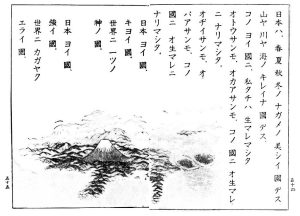 日本ハ、春夏秋冬ノ ナガメノ 美シイ 國 デス
山ヤ 川ヤ 海ノ キレイナ 國 デス
コノ ヨイ 國ニ、私タチハ 生マレマシタ
オトウサンモ、オカアサンモ、コノ 國ニ オ生マレ
ニ ナリマシタ。
オヂイサンモ、オ
バアサンモ、コノ
國ニ オ生マレニ
ナリマシタ。
五十四
日本 ヨイ 國、
キヨイ 國。
世界ニ 一ツノ
神ノ 國。
日本 ヨイ 國、
強イ 國。
世界ニ カガヤク
エライ 國。
五十五